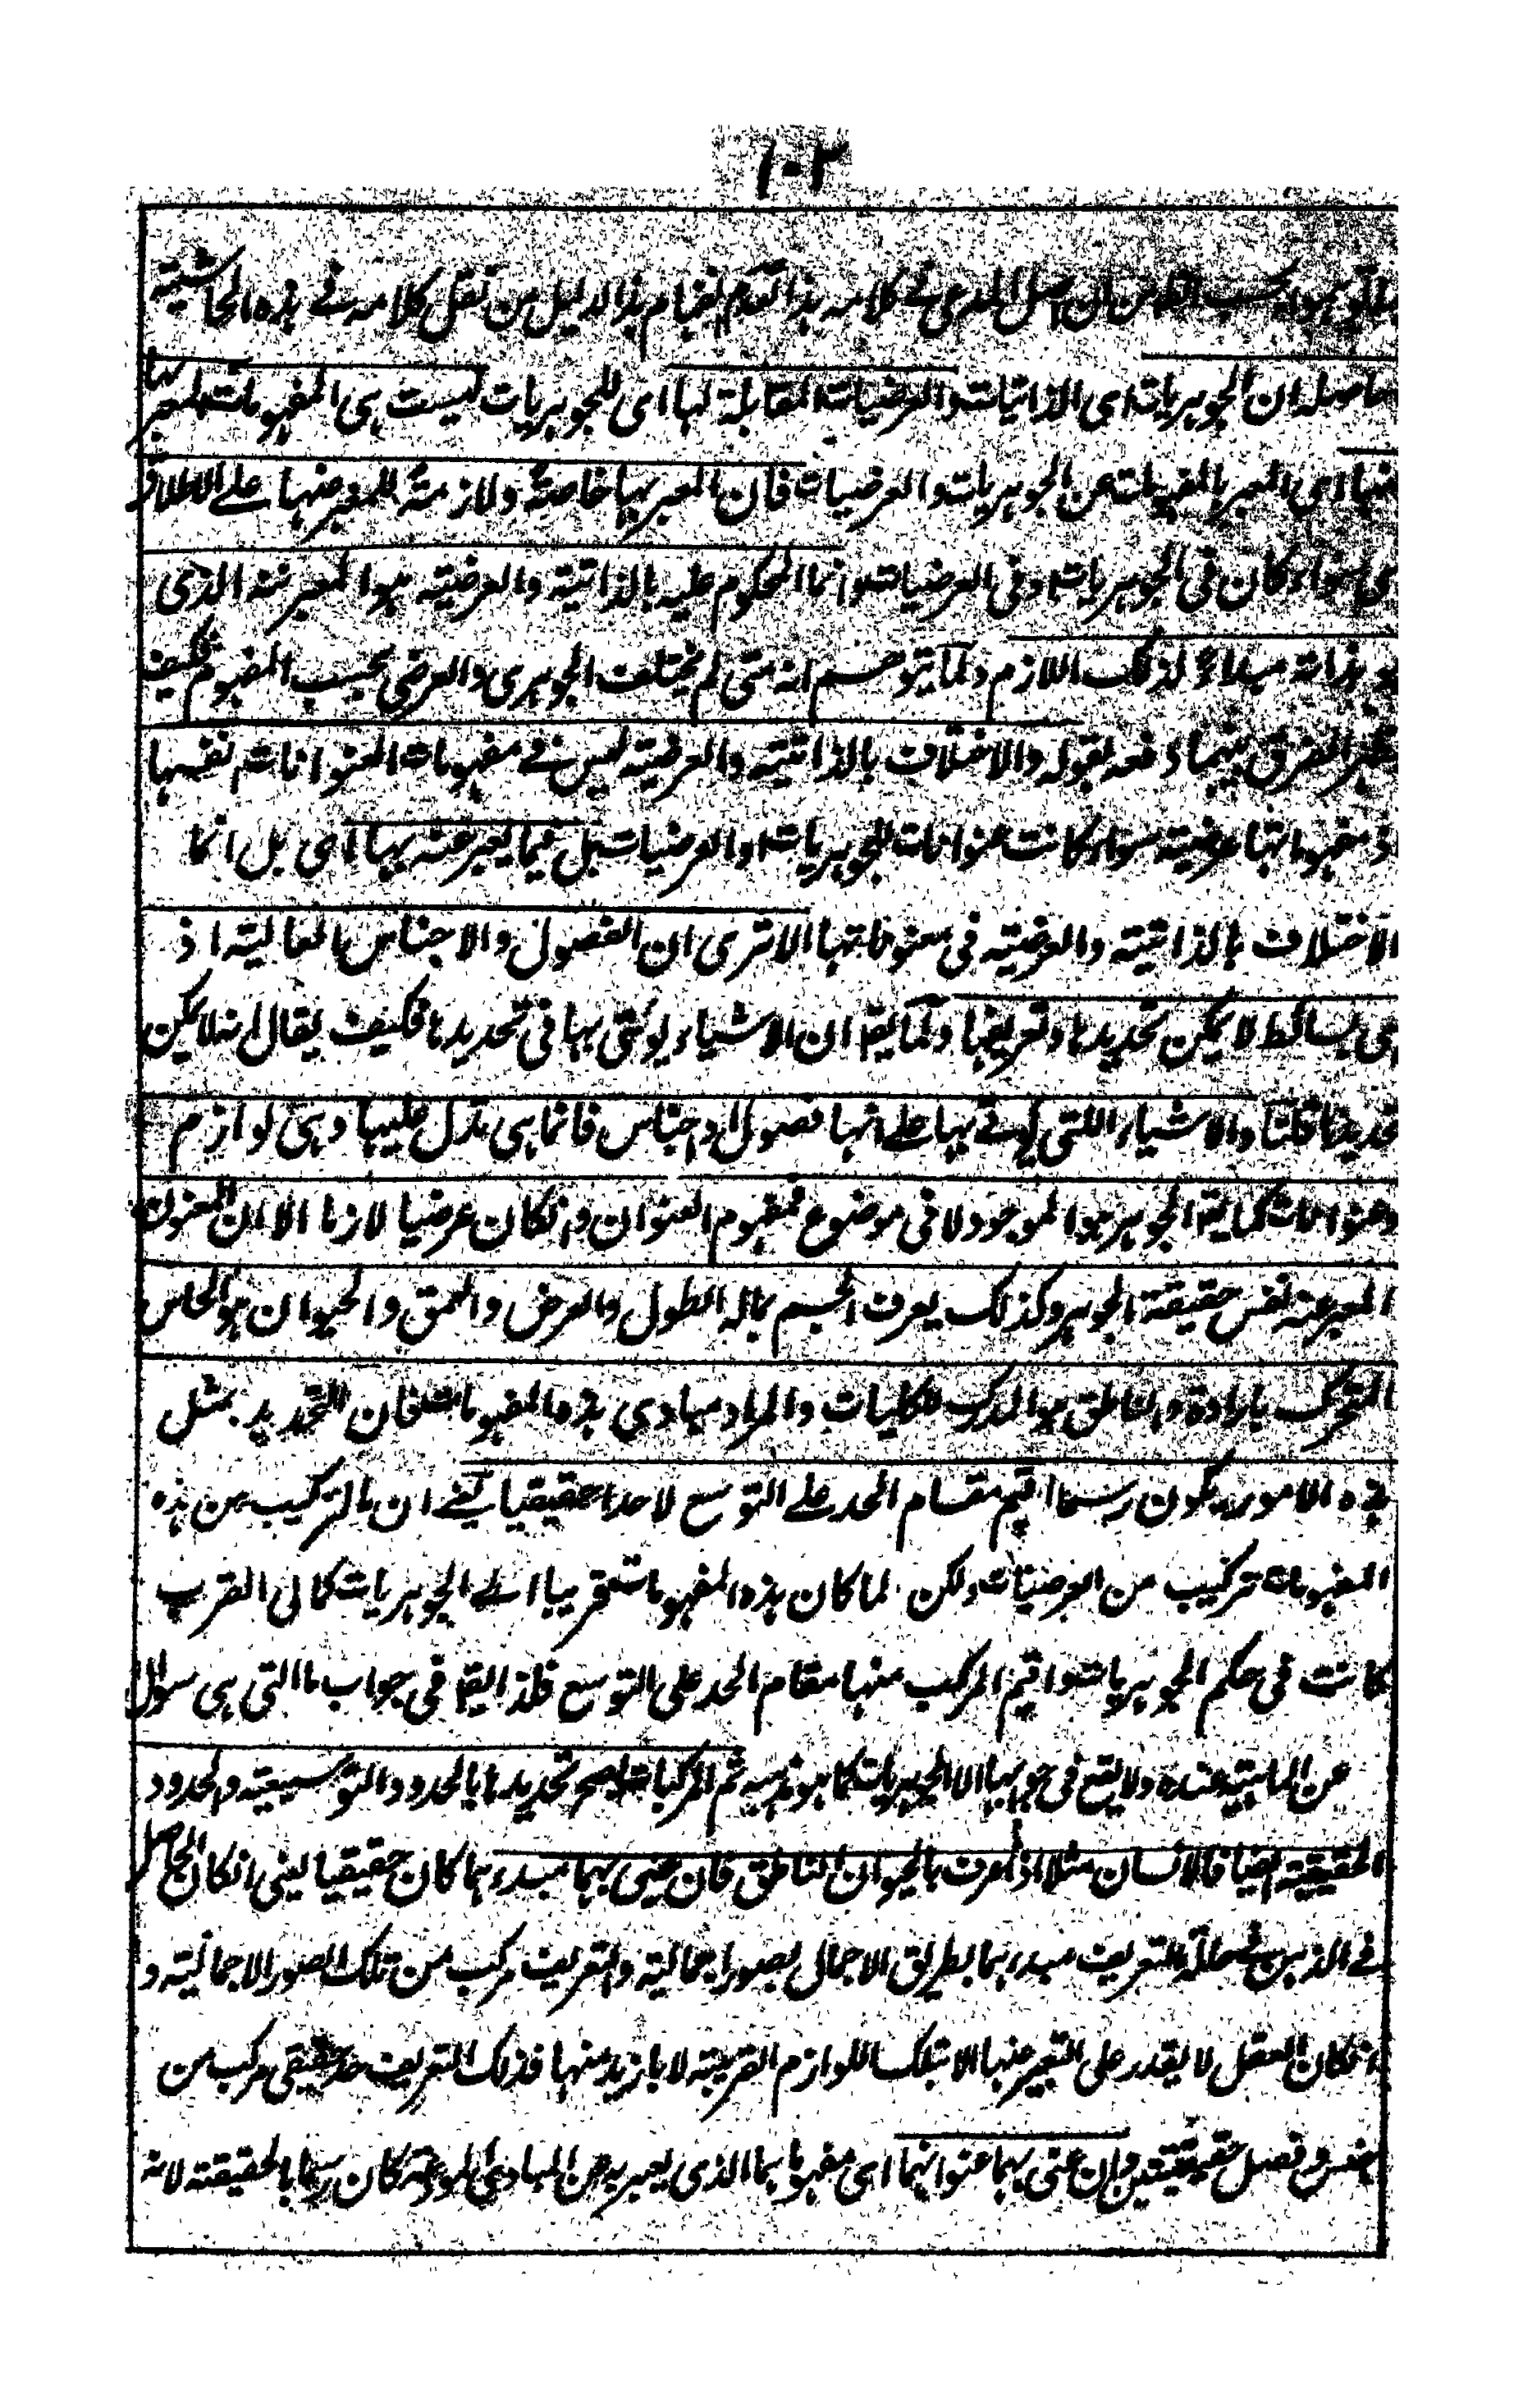 ١٠٢
بحسب الظاهر من ان اصل المدعى فى كلامه هذا تقدم انضمام هذا الدليل من نقل كلامه فى هذه الحاشية
حاصله ان الجوهريات اى الذاتيات والعرضيات المقابلة لها اى للجوهريات ليست هى المفهومات المعبر بها
عنها اى المعبر بالمفهومات عن الجوهريات والعرضيات فان المعبر بها خاصة ولازمة للمعبر عنها على الاطلاق
اى سواء كان فى الجوهريات او فى العرضيات وانما المحكوم عليه بالذاتية والعرضية هو المعبر عنه الذى
هو بذاته مبدأ لذلك اللازم ولما يتوهم انه متى لم يختلف الجوهرى والعرضى بحسب المفهوم فكيف
يظهر الفرق بينهما دفعه بقوله والاختلاف بالذاتية والعرضية ليس فى مفهومات العنوانات نفسها
اذ مفهوماتها عرضية سواء كانت عنوانات الجوهريات او العرضيات بل فيما يعبر عنه بها اى بل انما
الاختلاف بالذاتية والعرضية فى معنوناتها الا ترى ان الفصول والاجناس العالية اذ
هى بسائط لا يمكن تحديدها وتعريفها ولما يقا ان الاشياء يوتى بها فى تحديدها فكيف يقال انه لا يمكن
تحديدها قلنا والاشياء اللتى يوتى بها على انها فصول او اجناس فانما هى تدل عليها وهى لوازم
وعنوانات كما يقا الجوهر هو الموجود لا فى موضوع فمفهوم العنوان وانكان عرضيا لازما الا ان المعنون
المعبر عنه نفس حقيقة الجوهر وكذلك يعرف الجسم بماله الطول والعرض والعمق والحيوان هو الحاس
المتحرك بارادة والناطق هو المدرك للكليات والمراد مبادى هذه المفهومات فان التحديد بمثل
هذه الامور يكون رسما اقيم مقام الحد على التوسع لا حدا حقيقيا يعنے ان التركيب من هذه
المفهومات تركيب من العرضيات ولكن لما كان هذه المفهومات قريبا الے الجوهريات كمال القرب
كانت فى حكم الجوهريات واقيم المركب منها مقام الحد على التوسع فلذا يقا فى جواب ما التى هى سوال
عن الماهية عنده ولا يقع فى جوابها الا الجوهريات كما هو مذهبه ثم المركبات يصح تحديدها بالحدود التوسيعية والحدود
الحقيقية ايضا فالانسان مثلا اذا عرف بالحيوان الناطق فان عنى بهما مبدءهما كان حقيقيا يعنى انكان الحاصل
فى الذهن فى حالة التعريف مبدءهما بطريق الاجمال بصور اجمالية والتعريف مركب من تلك الصور الاجمالية و
انكان العقل لا يقدر على التعبير عنها الا بتلك اللوازم القريبة لا بازيد منها فذلك التعريف حد حقيقى مركب من
جنس وفصل حقيقتين وان عنى بهما عنوانهما اى مفهوماهما الذى يعبر به عن المبادى المودعة كان رسما بالحقيقة لانه